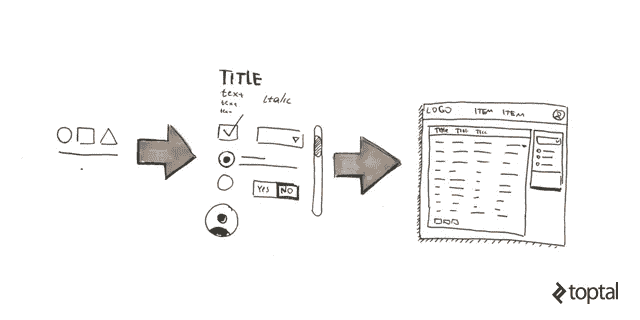 TITLE
text
text
text
italic
YES NO
LOGO ITEM ITEM
TITLE TITL TILL
toptal